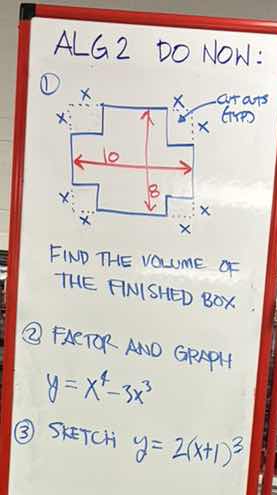 ALG2 DO NOW:
①
X X
CUT OUTS
(TYP)
X X
10
8
X X
X X
FIND THE VOLUME OF
THE FINISHED BOX
② FACTOR AND GRAPH
y = x⁴ - 3x³
③ SKETCH y = 2(x+1)³